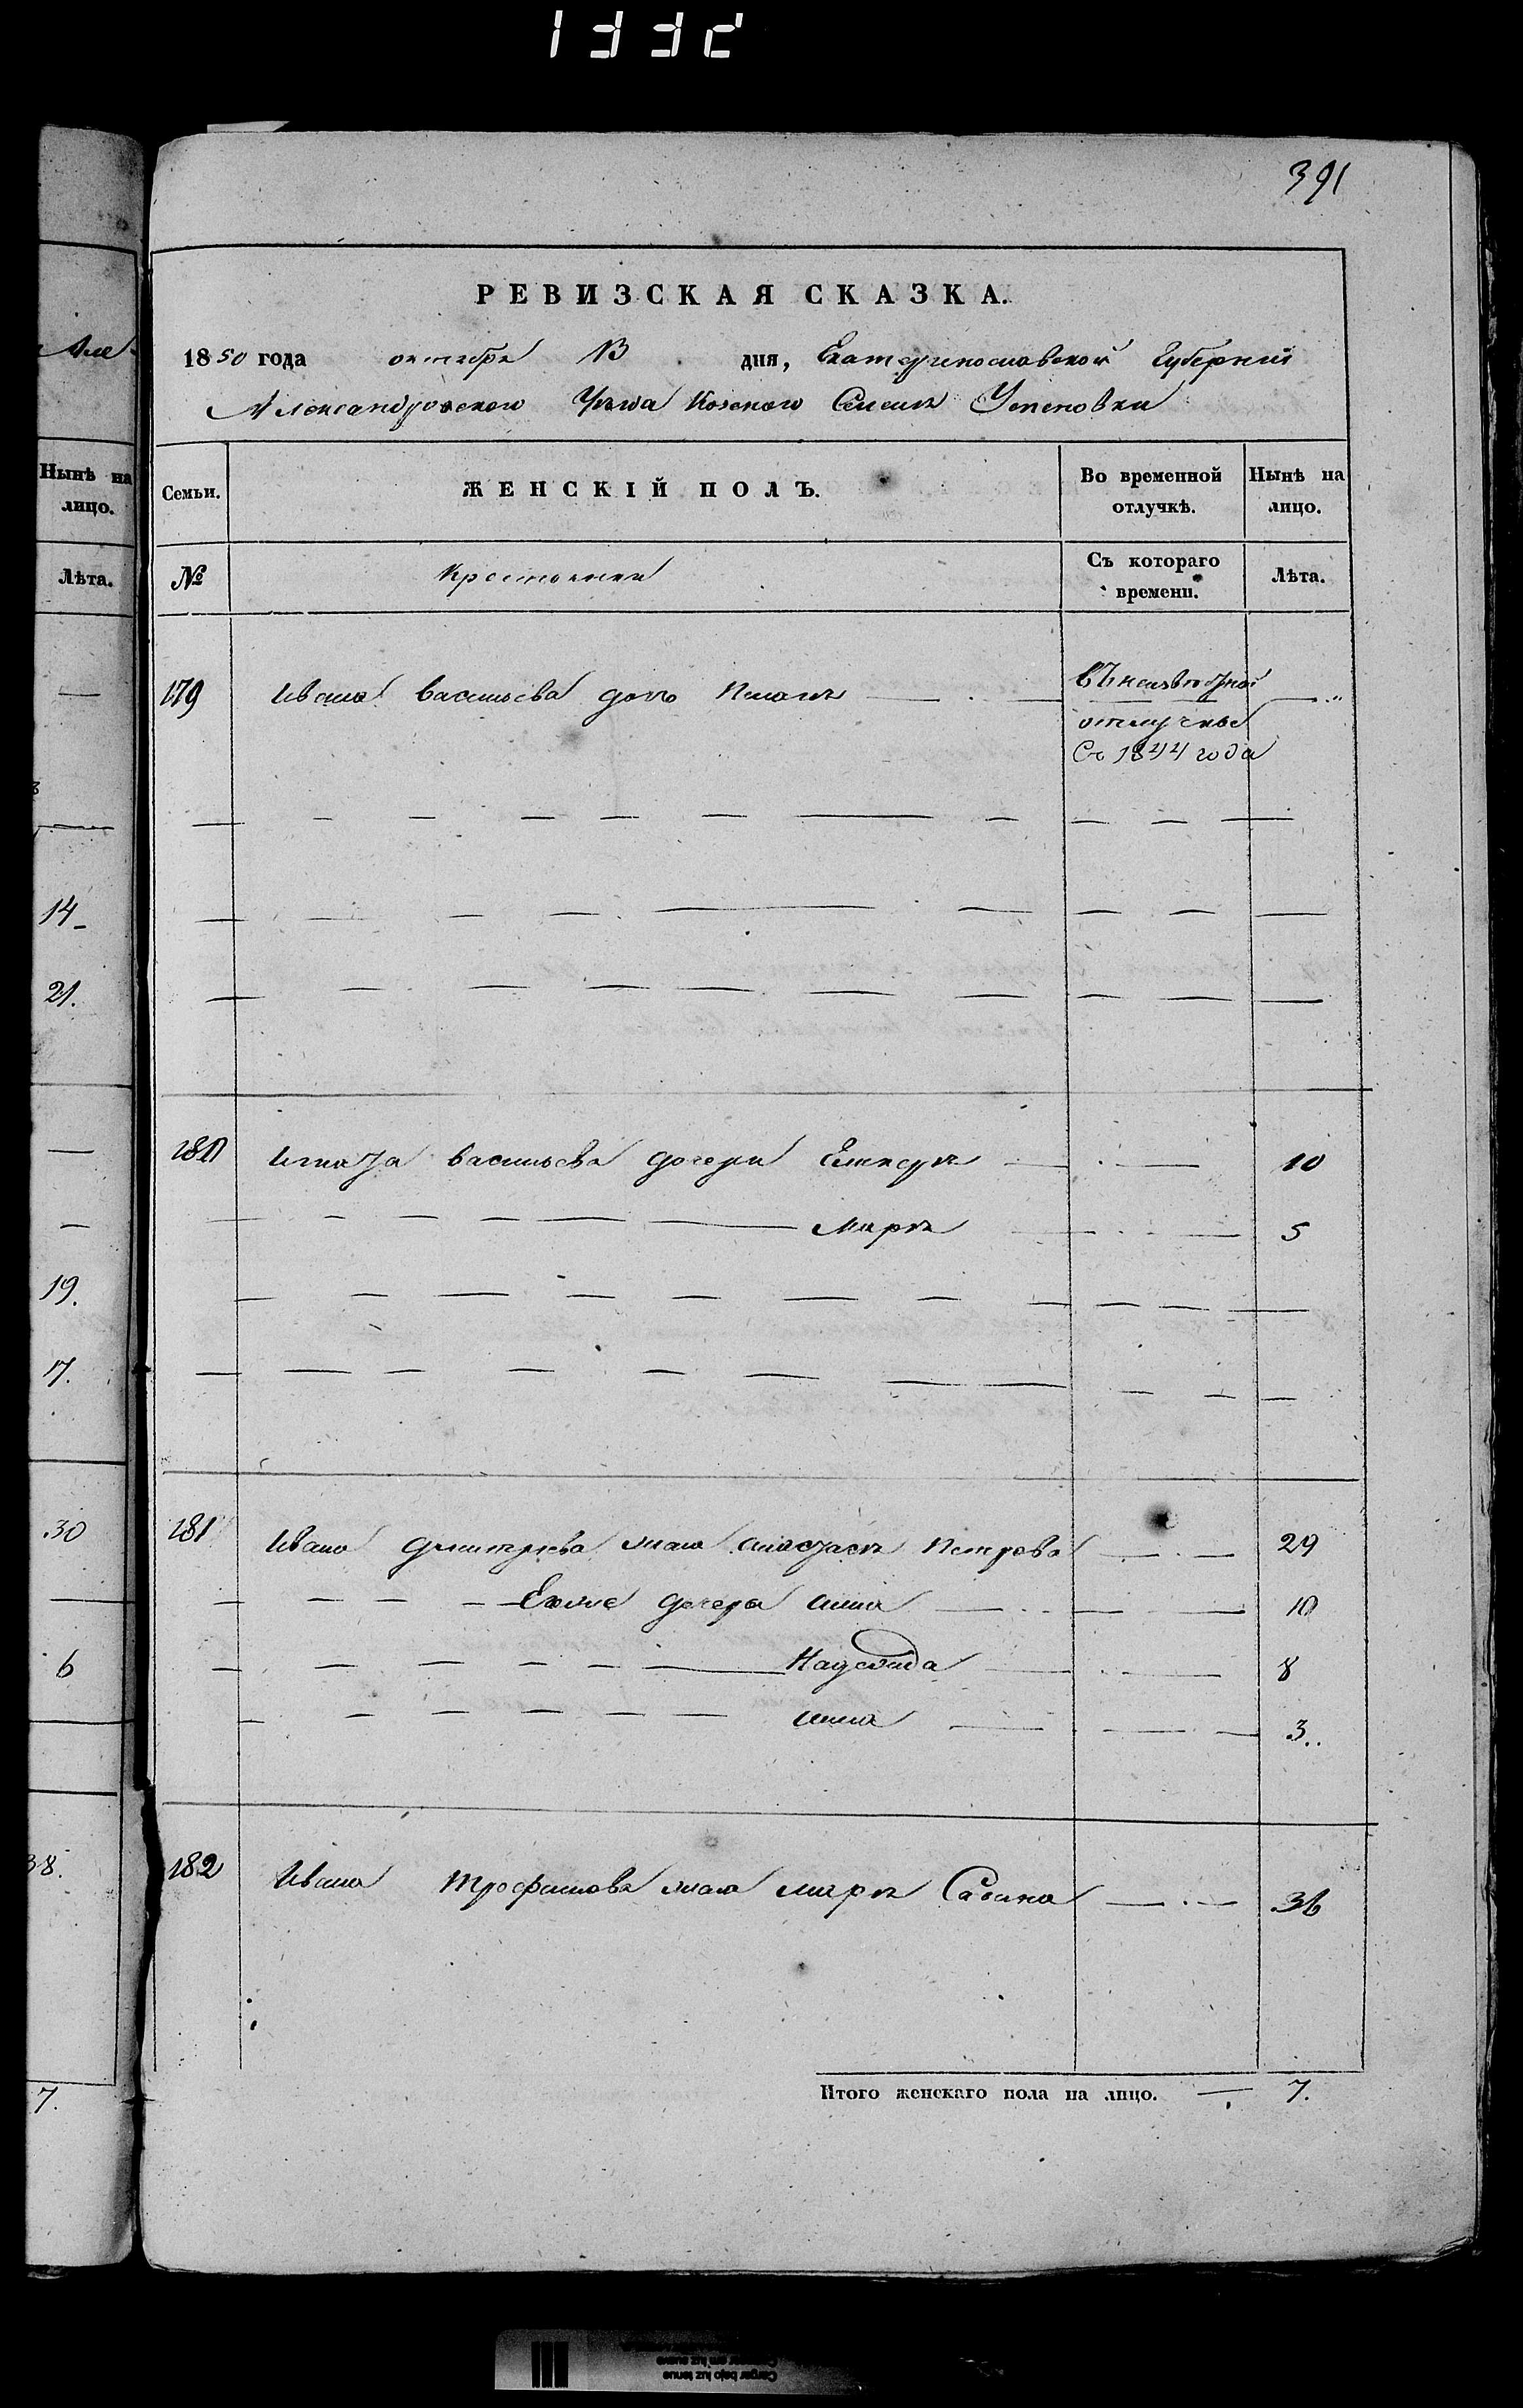 1332
391
РЕВИЗСКАЯ СКАЗКА.
1850 года октября 13 дня, Екатеринославской Губерний
Александровского Уезда Козеного Селения Успеновки
Але
Нынѣ на лицо.
Лѣта.
14
21.
19.
17.
30
6
38.
7.
Семьи.
ЖЕНСКІЙ ПОЛЪ.
Во временной отлучкѣ.
Нынѣ на лицо.
№
Крестьянки
Съ котораго времени.
Лѣта.
179 Ивана Васильева дочь
въ неизвѣстной
отлучке
Съ 1844 года
180 Игната Васильева дочери 10
Мария 5
181 Ивана Дмитриева жена Анастасия Петрова 29
Его же дочери Анна 10
Надежда 8
Анна 3
182 Ивана Трофимова жена Мария Савина 36
Итого женскаго пола на лицо. 7.